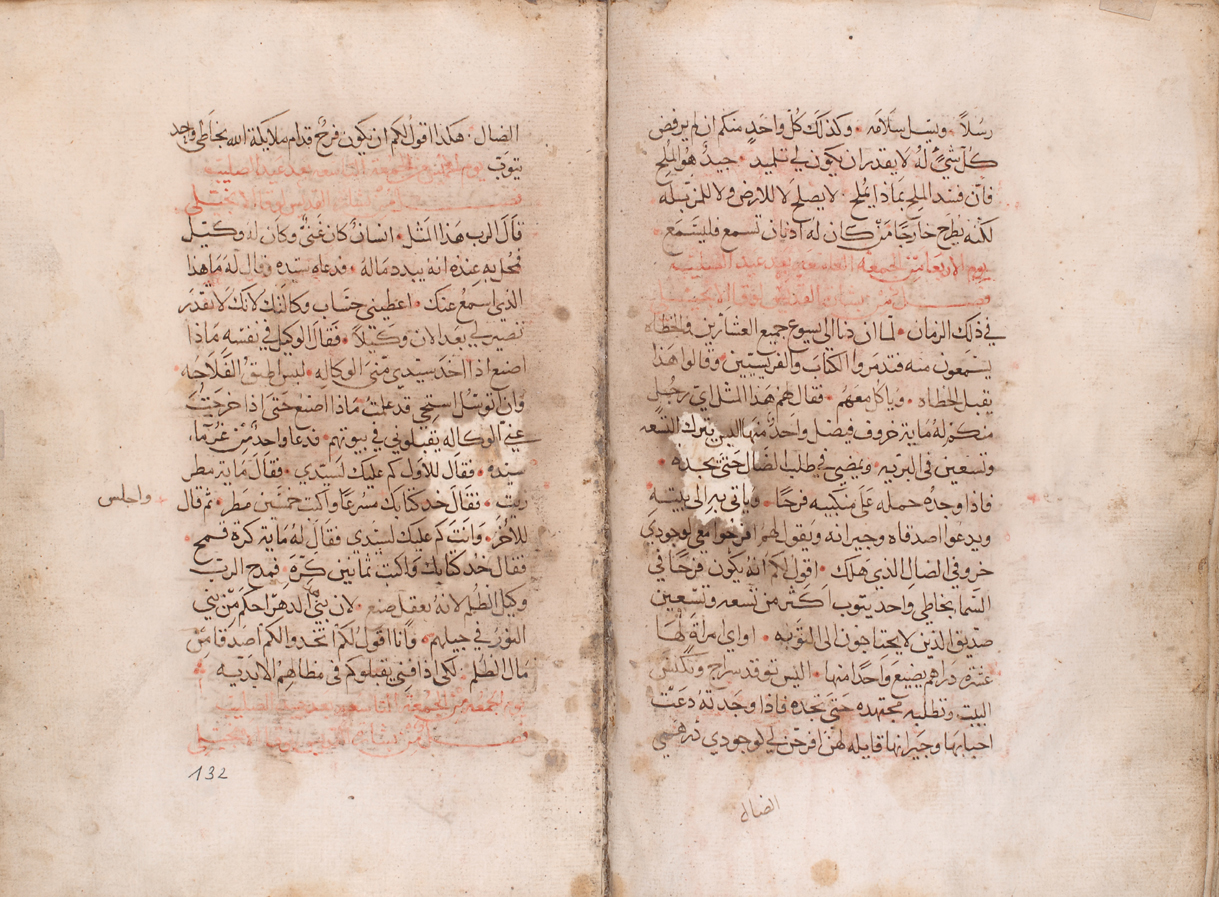 رسلاً • ويسل سلامه • وكذلك كل واحد منكم ان لم يرفض
كل شيءٍ له لا يقدر ان يكون لي تلميد • جيدٌ هو الملح
فان فسد الملح بماذا يملح • لا يصلح لا للارض ولا للمزبلة
لكنه يطرح خارجًا من كان له اذنان تسمع فليسمع •
يوم الاربعا من الجمعه التاسعه بعد عيد الصليب
فصل من بشارة القديس لوقا الانجيلي
في ذلك الزمان • لما ان دنا الى يسوع جميع العشارين والخطاه
يستمعون منه فتدمروا الكتاب والفريسيين وقالوا هذا
يقبل الخطاه • وياكل معهم • فقال لهم هذا المثل اي رجل
منكم له مايه خروف فيضل واحدٌ منها اليس يترك التسعه
وتسعين في البريه • ويمضي في طلب الضال حتى يجده •
فاذا وجده حمله على منكبيه فرحًا • وياتي به الى بيته
ويدعوا اصدقاه وجيرانه ويقول لهم افرحوا معي لوجودي
خروفي الضال الذي هلك • اقول لكم انه يكون فرحًا في
السما بخاطي واحد يتوب اكثر من تسعه وتسعين
صديق الذين لا يحتاجون الى التوبه • او اي امراة لها
عشره دراهم يضيع واحدًا منها • اليس توقد سراج وتكنس
البيت وتطلبه مجتهده حتى تجده فاذا وجدته دعت
احبابها وجيرانها قايله لهن افرحن لي لوجودي درهمي
الضال
الضال • هكذا اقول لكم ان يكون فرحٌ قدام ملايكة الله بخاطي واحد
يتوب يوم الخميس من الجمعه التاسعه بعد عيد الصليب
فصل من بشارة القديس لوقا الانجيلي
قال الرب هذا المثل • انسان كان غنيٌ وكان له وكيل
فمحل به عنده انه يبدد ماله • فدعاه سيده وقال له ما هذا
الذي اسمع عنك • اعطيني حساب وكالتك لانك لا تقدر
تصير لي بعد الان وكيلاً • فقال الوكيل في نفسه ماذا
اصنع اذا اخذ سيدي مني الوكاله • ليس اطيق الفلاحه
وان اتوسل استحي قد علمت ماذا اصنع حتى اذا خرجت
عني الوكاله يقبلوني في بيوتهم • فدعا واحد من غرماء
سيده • فقال للاول كم عليك لسيدي • فقال مايه مطر
زيت • فقال خد كتابك مسرعًا واكت خمسين مطر • ثم قال
واجلس
للاخر • وانت كم عليك لسيدي فقال له مايه كرة قمح
فقال خد كتابك واكت ثمانين كرة • فمدح الرب
وكيل الظلم لانه بعقل صنع • لان بني الدهر احكم من بني
النور في جيلهم • وانا اقول لكم اتخدوا لكم اصدقا من
مال الظلم • لكي اذا فني يقبلوكم في مظالهم الابديه •
يوم الجمعه من الجمعة التاسعه بعد عيد الصليب
فصل من بشارة
132